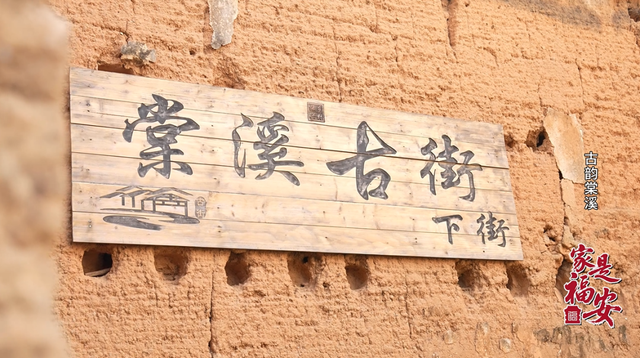 棠溪古街
下街
古韵棠溪
家是福安